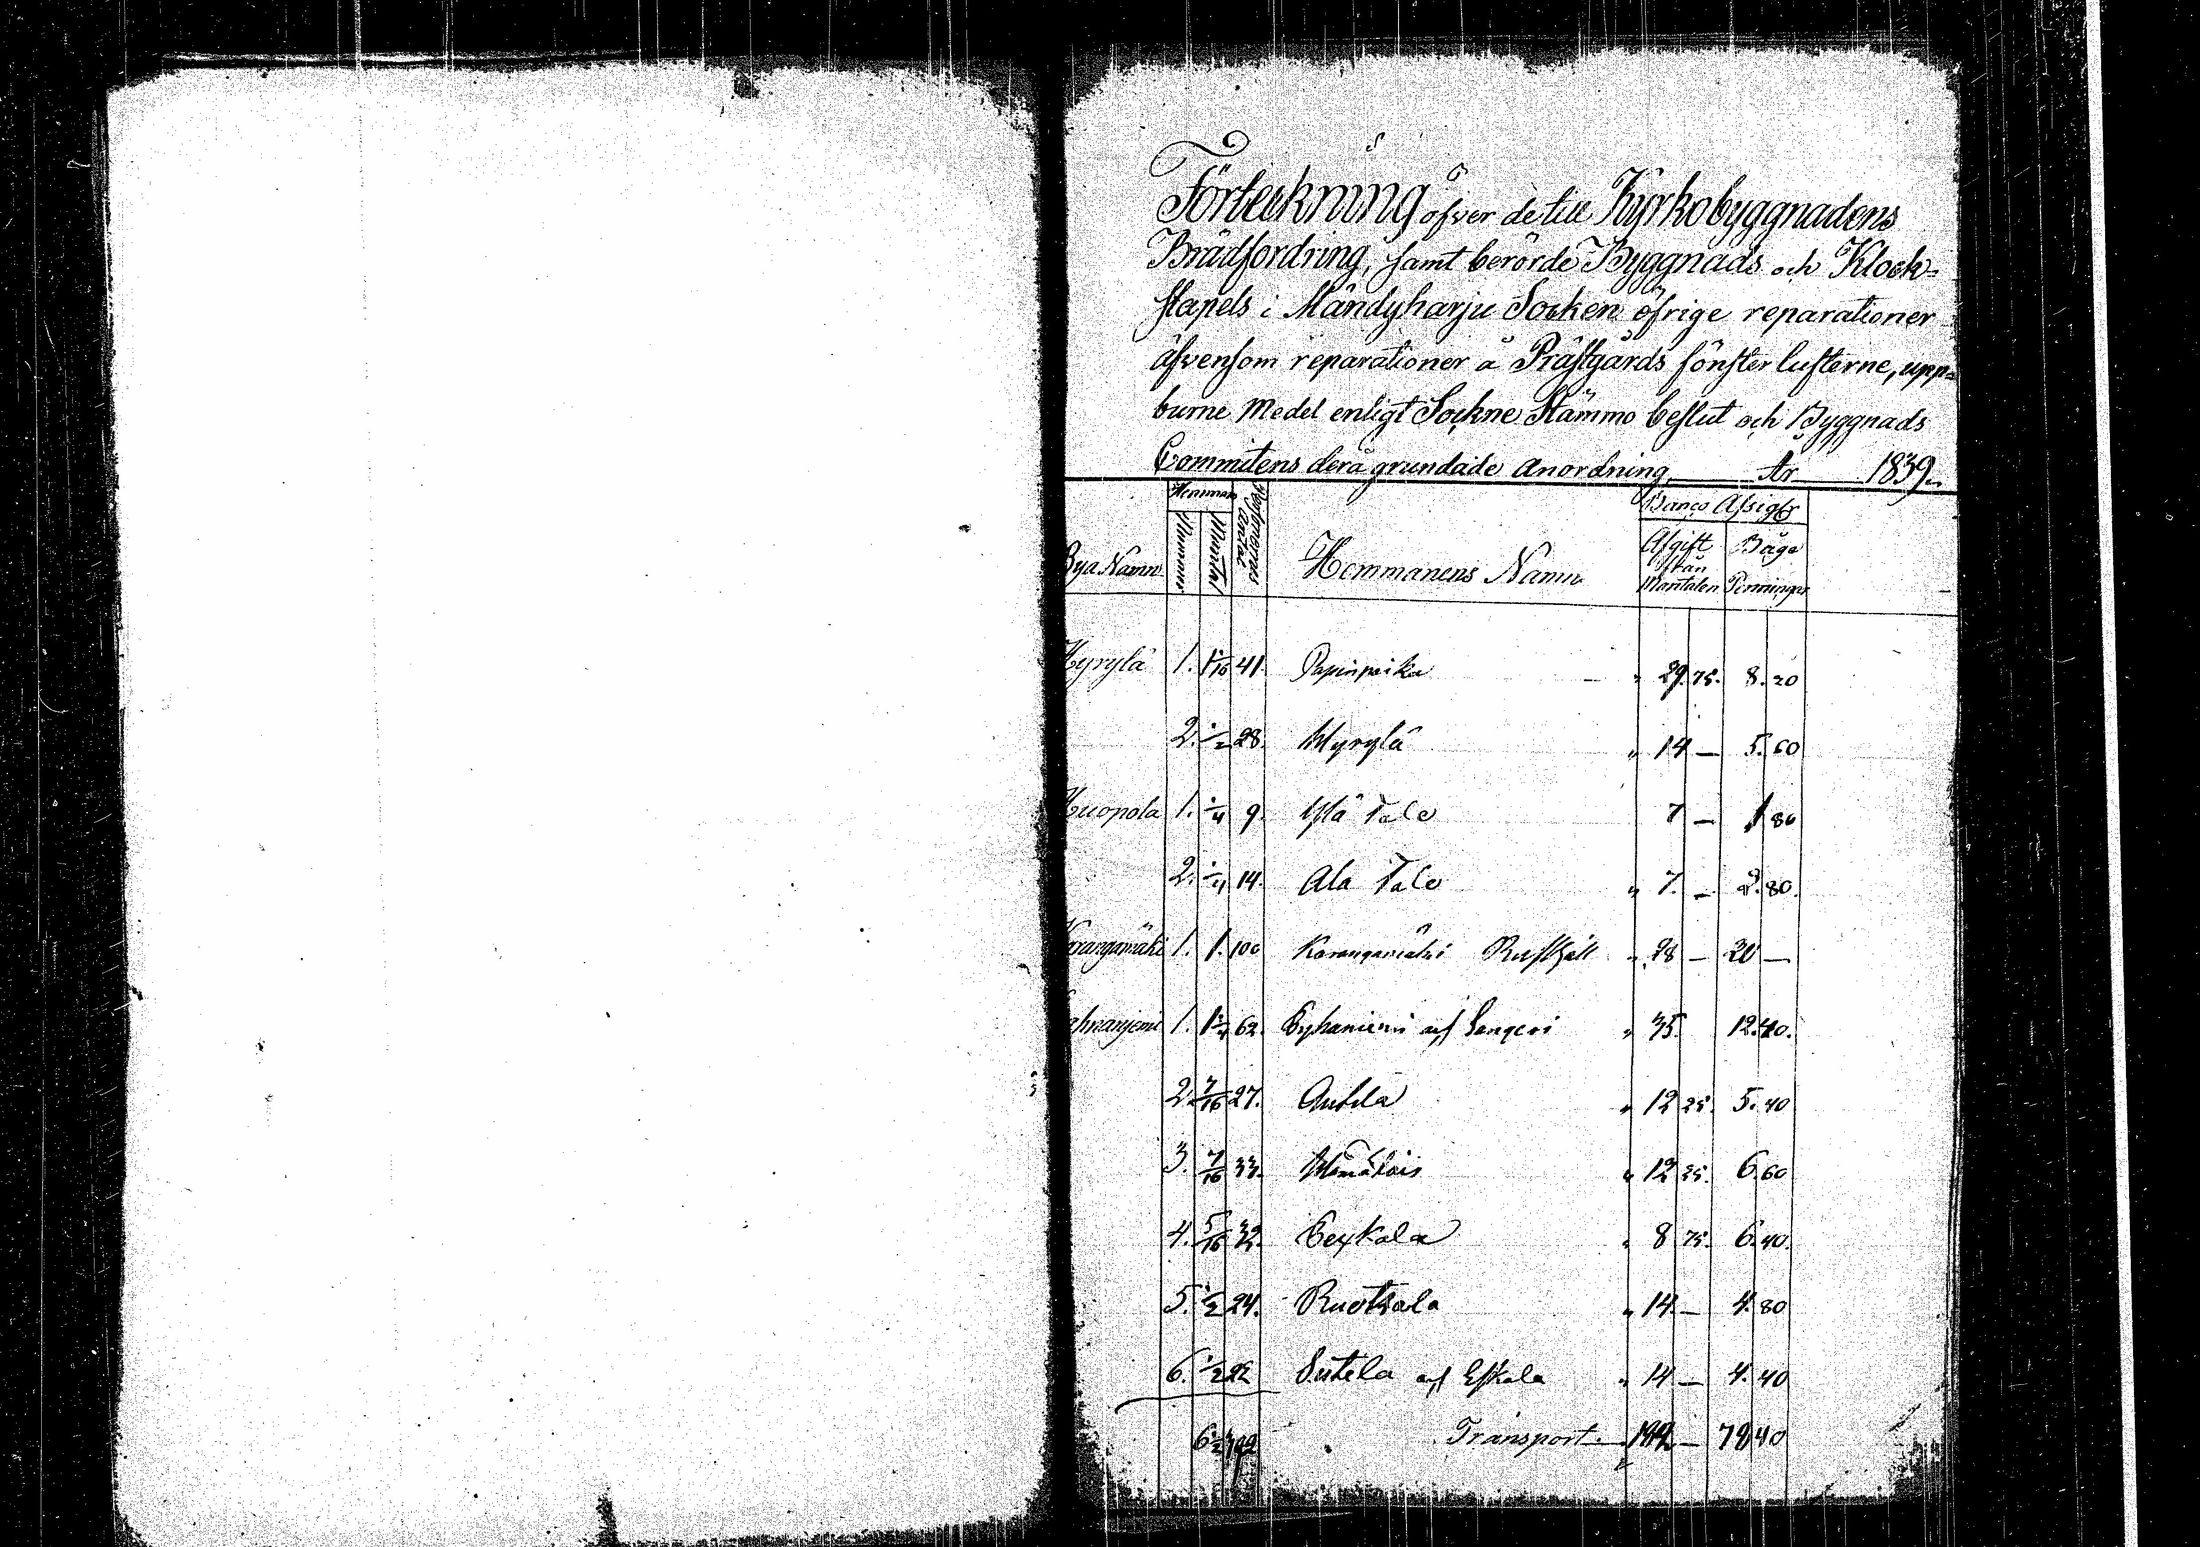 Förteckning öfver de till Kyrkobyggnadens
Brädfordring, samt berörde Byggnads och Klock-
stapels i Mändyharju Socken öfrige reparationer
äfvensom reparationer å Prästgårds fönster lufterne, upp-
burne Medel enligt Sockne Stämmo beslut och Byggnads
Commitens derå grundade Anordning År 1839.
Hemman Banco Assigr
Bya Namn Nummer Mantal Personernes Antal Hemmanens Namn Afgift från Mantalen Båge Penningar
Kyrylä 1. 1 1/16 41. Papinpaika " 29. 75. 8. 20
2. 1/2 28. Kyrylä " 14 — 5. 60
Kuopola 1. 1/4 9. Ylä Talo 7 — 1 80
2. 1/4 14. Ala Talo " 7. — 2. 80.
Karangamäki 1. 1. 100 Karangamäki Rusthåll " 28 — 20 —
1. 1 1/4 62. Pyhaniemi af Langeri " 35. 12. 40.
2. 7/16 27. Antila " 12 25. 5. 40
3. 7/16 33. " 12 25. 6. 60
4. 5/16 32. Peykala " 8 75. 6. 40.
5. 1/2 24. Ruotsala " 14. — 4. 80
6. 1/2 22 Sutela af Eskola " 14 — 4. 40
6 1/2 392 Transport. 182 — 78 40